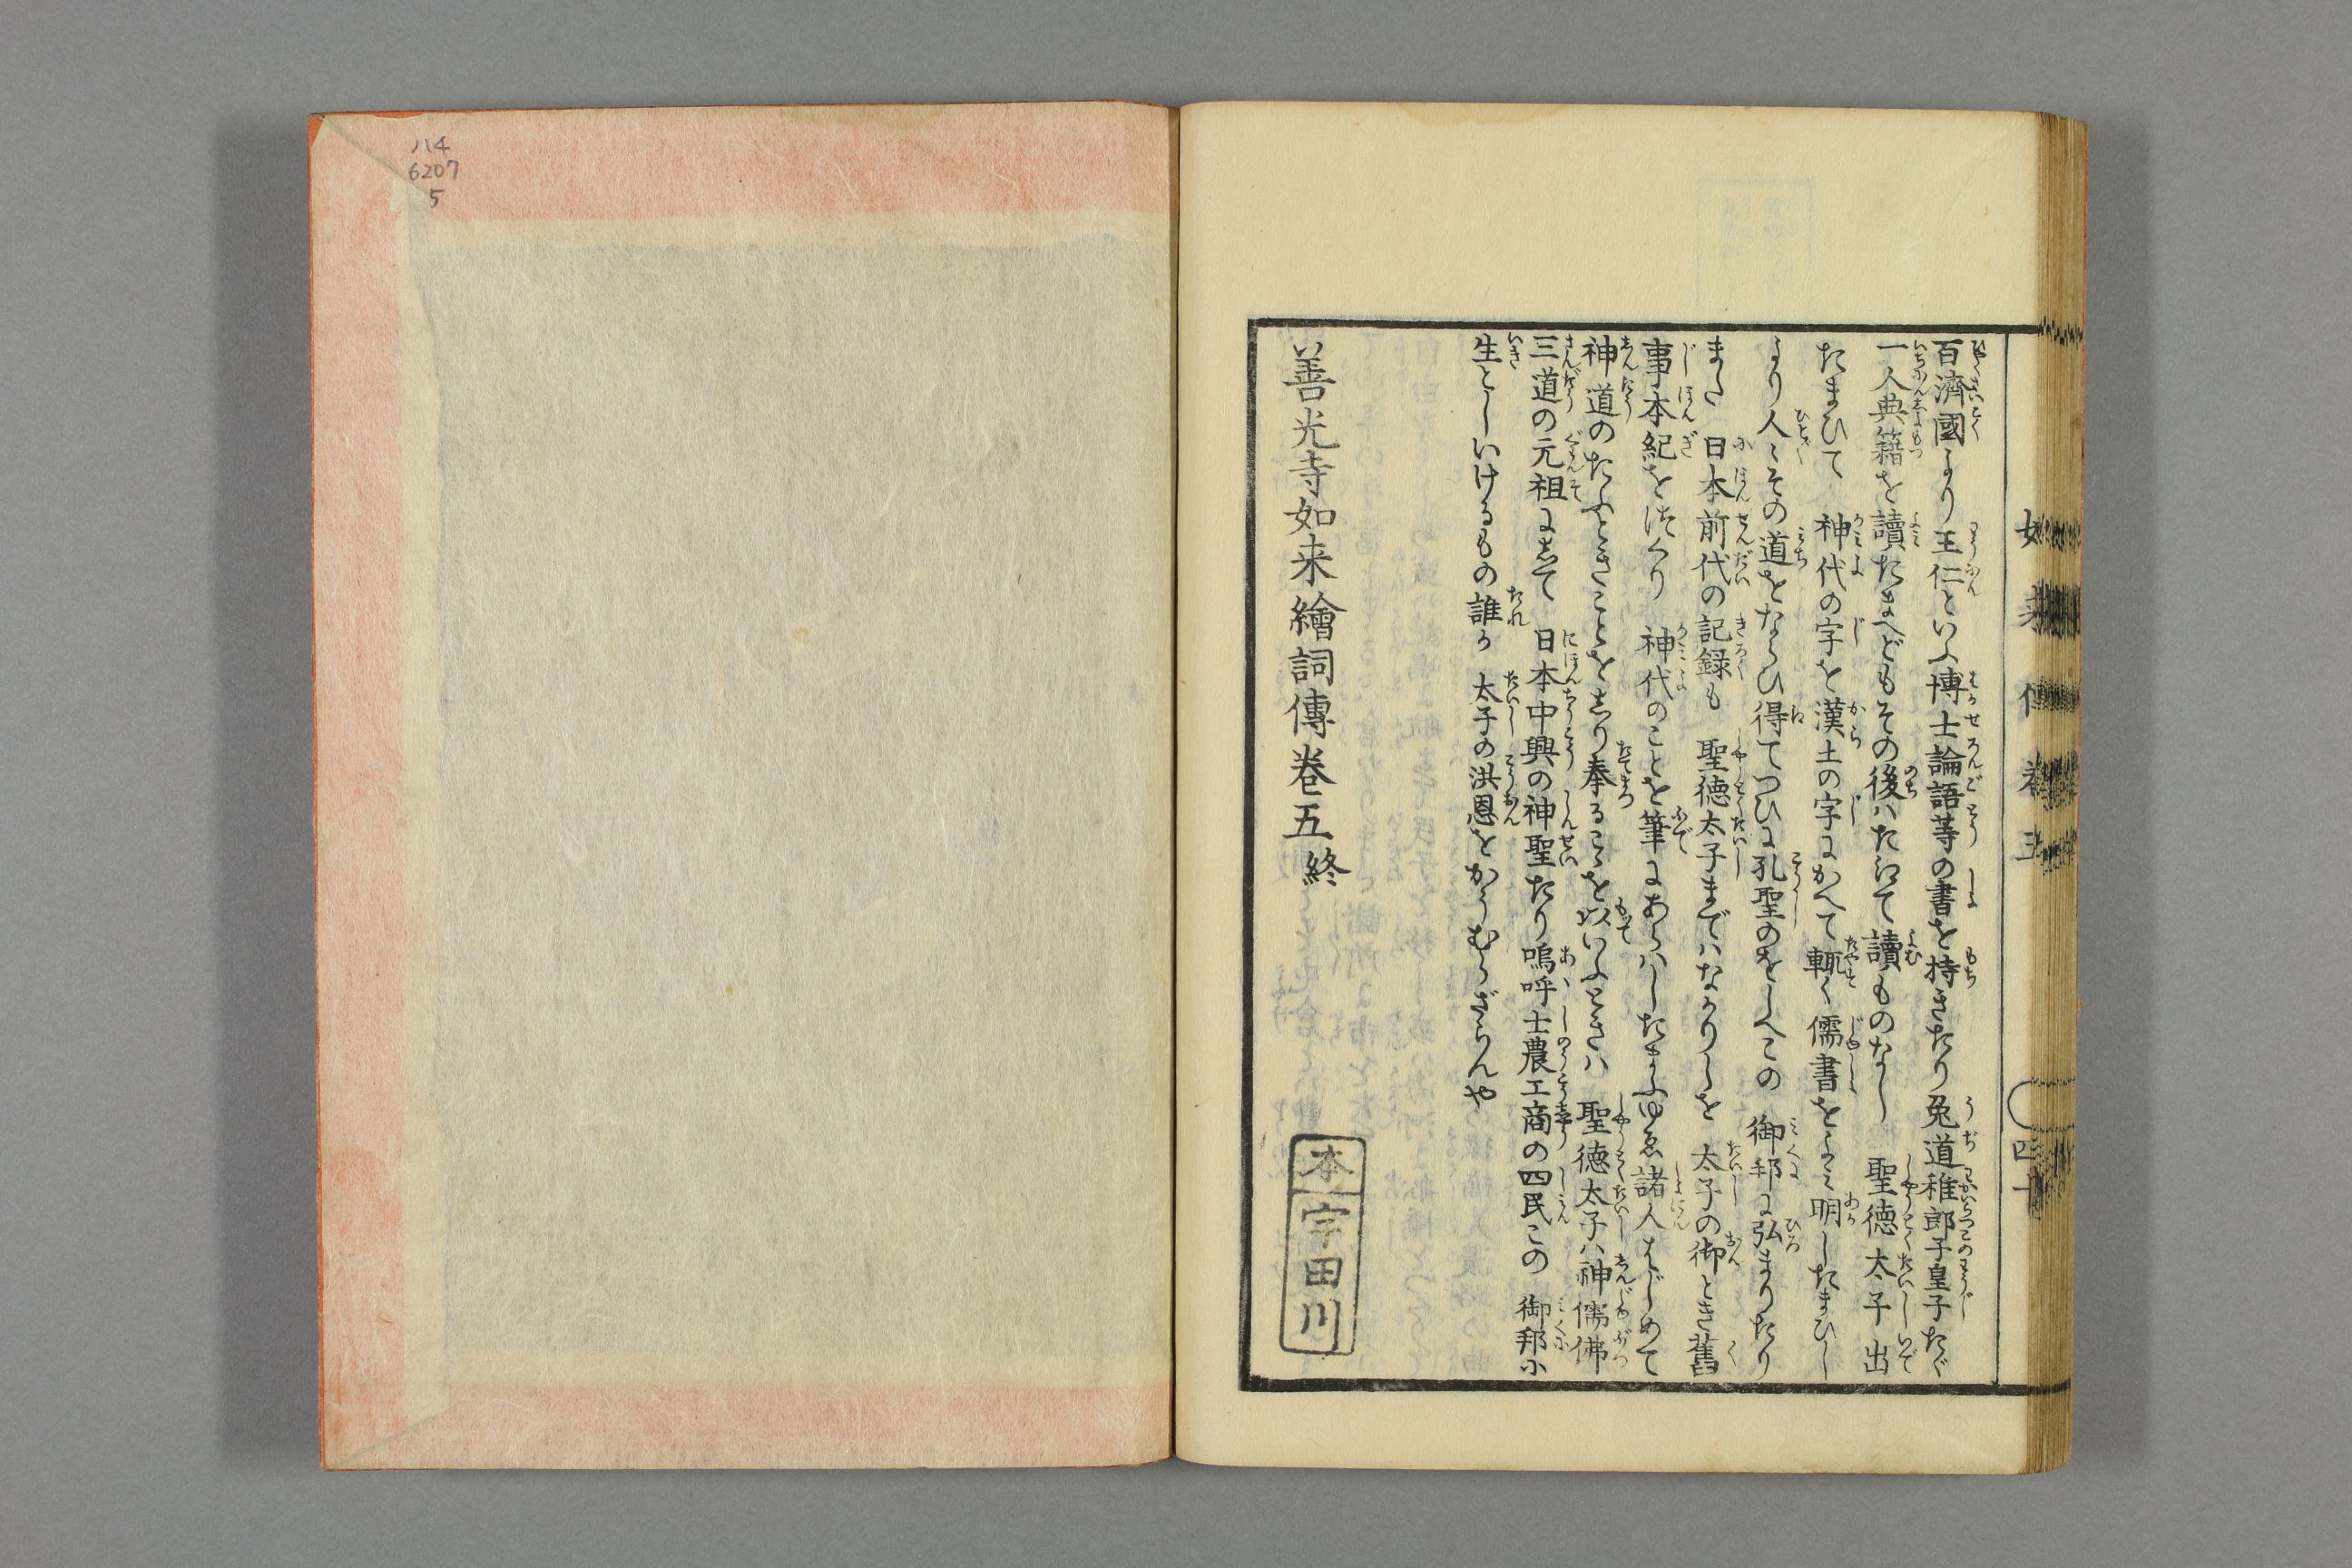 百濟國より王仁といふ博士論語等の書を持きたり兔道稚郎子皇子たゞ
一人典籍を讀たまへどもその後ハたえて讀ものなし 聖徳太子出
たまひて 神代の字を漢土の字にかへて輙く儒書をよミ明したまひし
より人〻その道をならひ得てつひに孔聖のをしへこの 御邦に弘まりたり
また 日本前代の記録も 聖徳太子まではハなかりしを 太子の御とき舊
事本紀をつくり 神代のことを筆にあらハしたまふゆゑ諸人はじめて
神道のたふときことをしり奉るこゝを以いふときハ 聖徳太子ハ神儒佛
三道の元祖にして 日本中興の神聖たり嗚呼士農工商の四民この 御邦に
生としいけるもの誰か 太子の洪恩をかうむらざらんや
善光寺如来繪詞傳卷五終
本宇田川
ハ4
6207
5